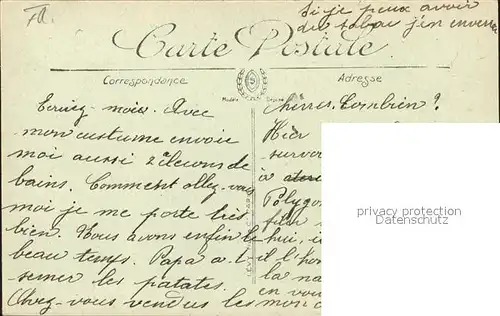 Si je peux avoir
du tabac j'en enverrai
Carte Postale
Correspondance
Adresse
Modèle Déposé
Ecrivez-moi. Avec
mon costume envoie
moi aussi 2 caleçons de
bains. Comment allez-vous
moi je me porte très
bien. Nous avons enfin le
beau temps. Papa a-t-il
semer les patates.
Avez-vous vendus les
chèvres. Combien ?
Hier
à
Polygo
hui, i
la na
en vo
mon c
privacy protection